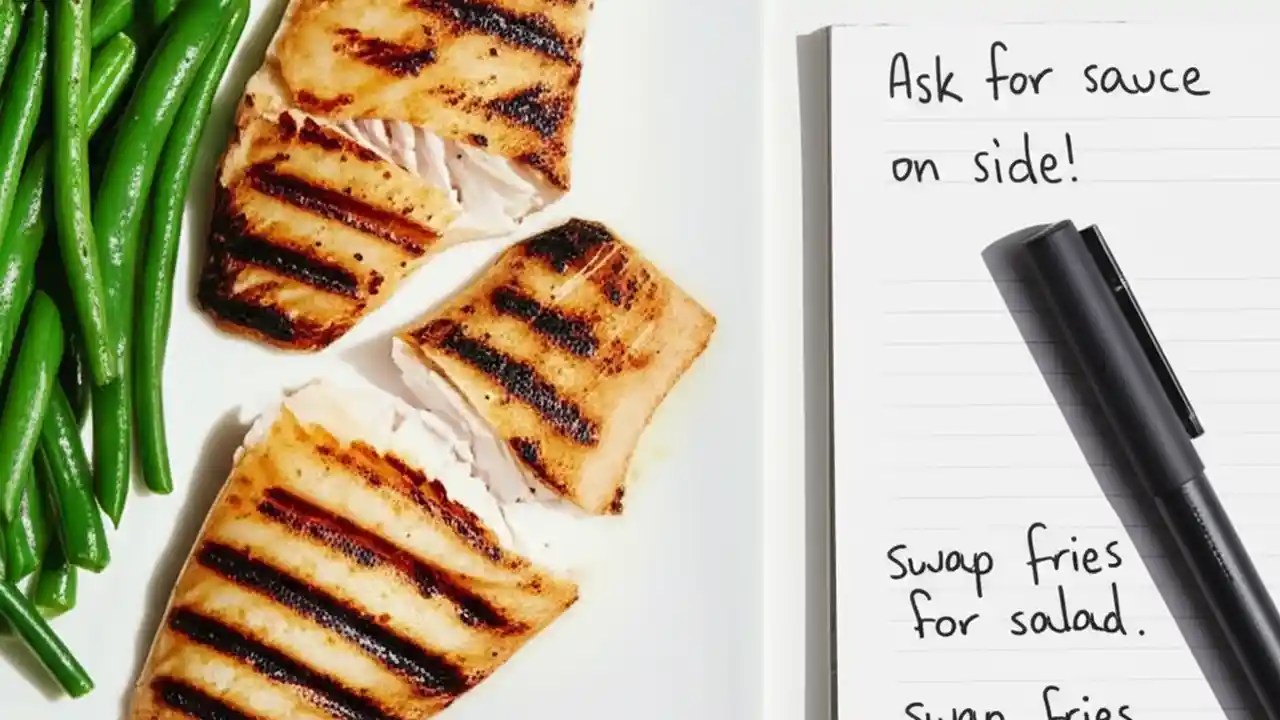 Ask for sauce
on side!
swap fries
for salad.
swap fries